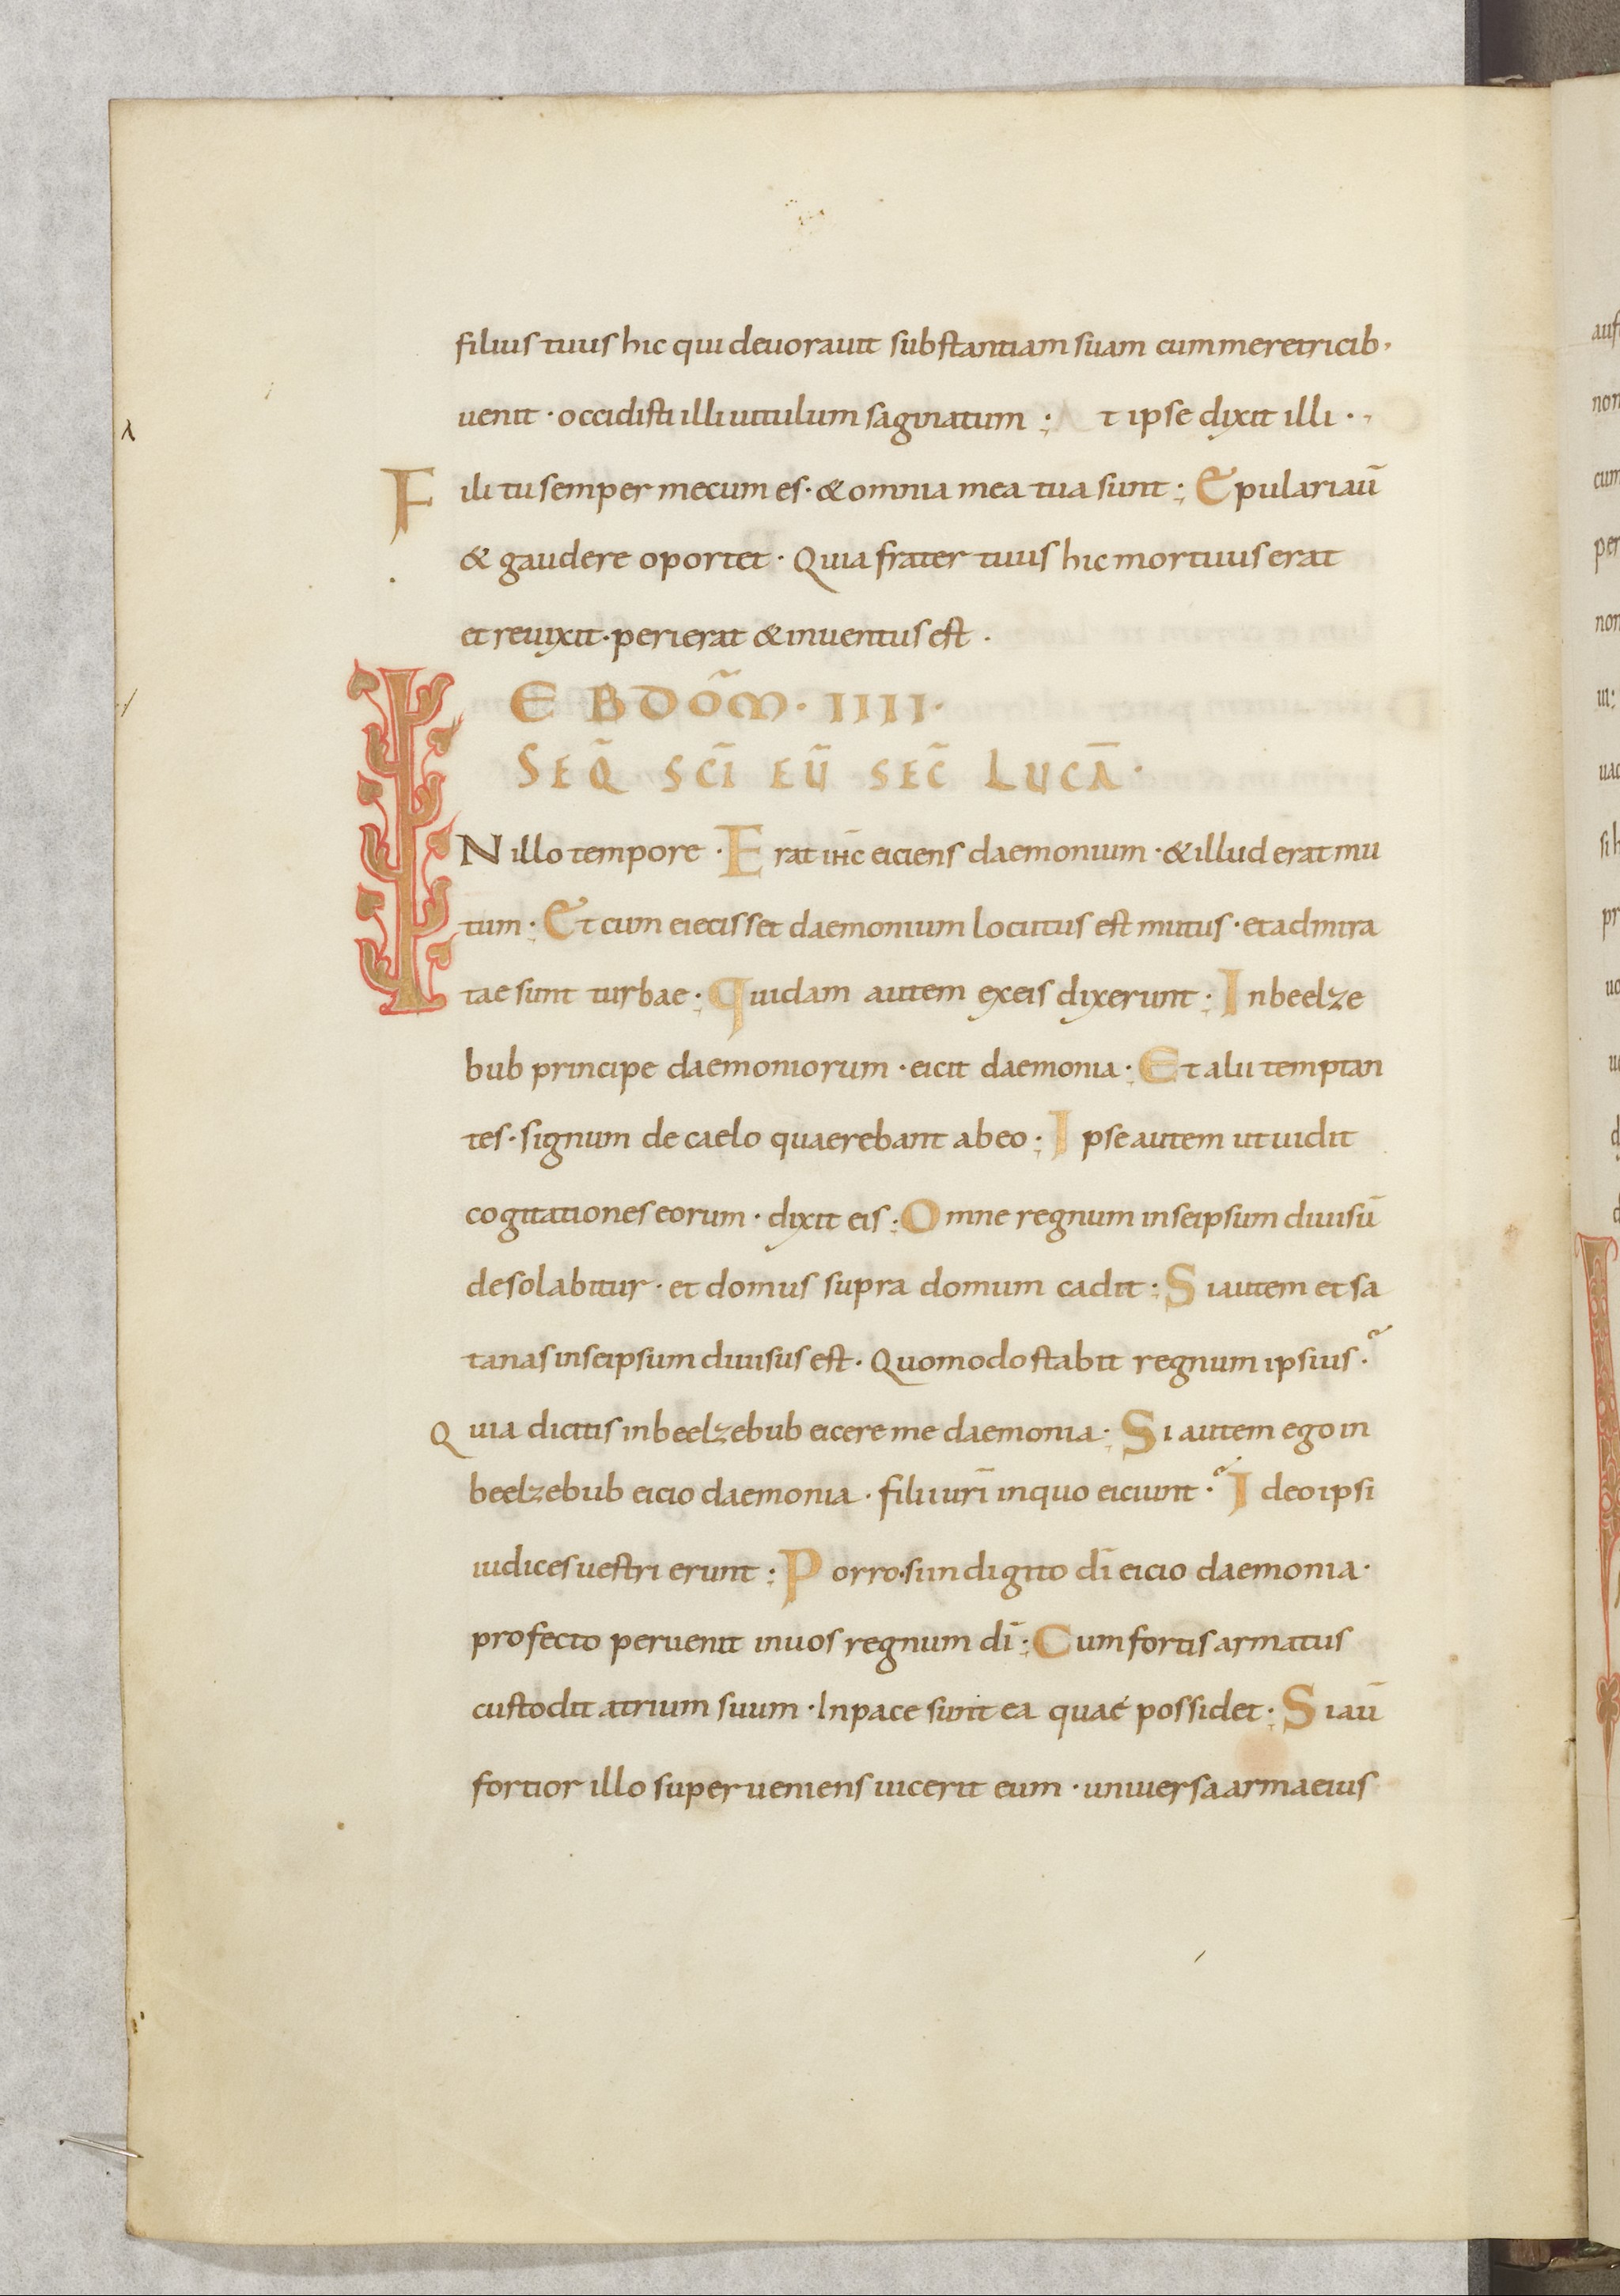 filius tuus hic qui deuorauit substantiam suam cum meretricib,
uenit · occidisti illi uitulum saginatum : t ipse dixit illi ·
Fili tu semper mecum es · & omnia mea tua sunt : Epulari aū
& gaudere oportet · Quia frater tuus hic mortuus erat
et reuixit · perierat & inuentus est .
EBDOM̃ · IIII ·
SEQ̃ SC̄I EŪ SEC̃ LUCĀ ·
IN illo tempore · Erat ih̄c eiciens daemonium · & illud erat mu
tum : Et cum eiecisset daemonium locutus est mutus · et admira
tae sunt turbae : Quidam autem ex eis dixerunt : In beelze
bub principe daemoniorum · eicit daemonia : Et alii temptan
tes · signum de caelo quaerebant ab eo : Ipse autem ut uidit
cogitationes eorum · dixit eis : Omne regnum in seipsum diuisū
desolabitur · et domus supra domum cadit : Si autem et sa
tanas in seipsum diuisus est · Quomodo stabit regnum ipsius ?
Quia dicitis in beelzebub eicere me daemonia : Si autem ego in
beelzebub eicio daemonia · filii ur̄i in quo eiciunt ? Ideo ipsi
iudices uestri erunt : Porro · si in digito dī eicio daemonia ·
profecto peruenit in uos regnum dī : Cum fortis armatus
custodit atrium suum · In pace sunt ea quae possidet : Si aū
fortior illo superueniens uicerit eum · uniuersa arma eius